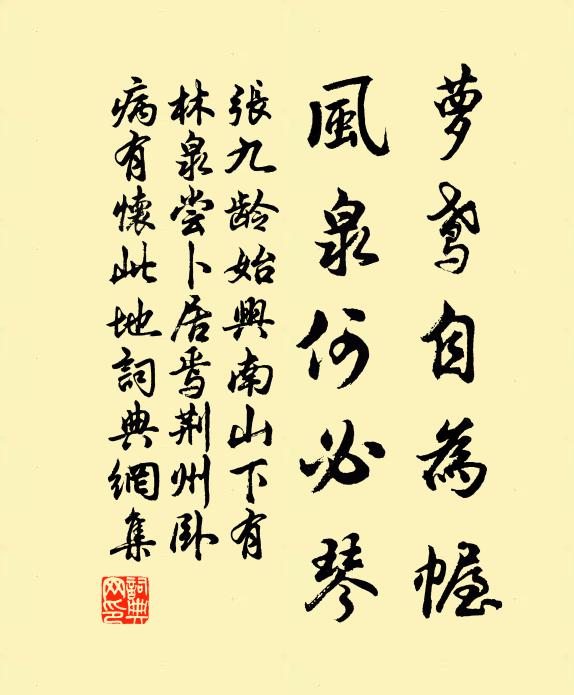 萝鸢自為幄
風泉何必琴
張九龄始興南山下有
林泉尝卜居焉荆州卧
病有懷此地詞典網集
詞典网印